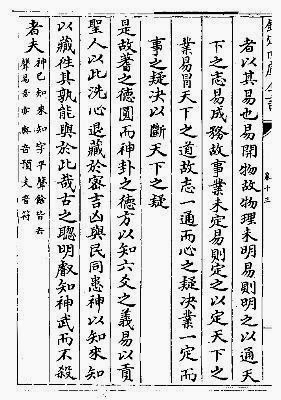 卷十三
者以其易也易開物故物理未明易則明之以通天
下之志易成務故事業未定易則定之以定天下之
業易冒天下之道故志一通而心之疑決業一定而
事之疑決以斷天下之疑
是故蓍之德圓而神卦之德方以知六爻之義易以貢
聖人以此洗心退藏於密吉凶與民同患神以知來知
以藏往其孰能與於此哉古之聰明叡知神武而不殺
者夫
神已知來知字平聲餘皆去
聲易音亦與音預夫音符